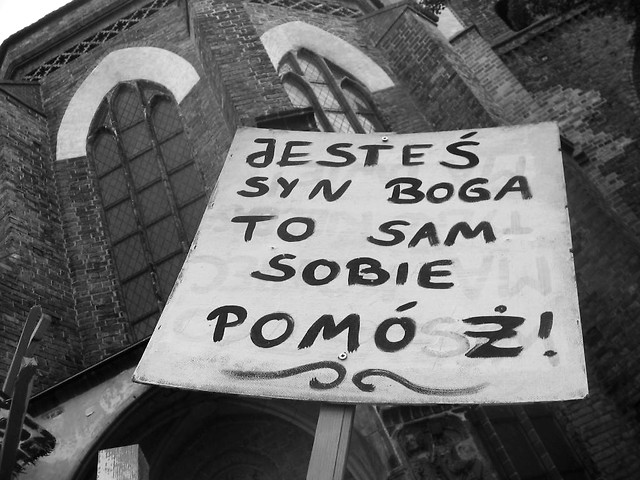 JESTEŚ
SYN BOGA
TO SAM
SOBIE
POMÓŻ!